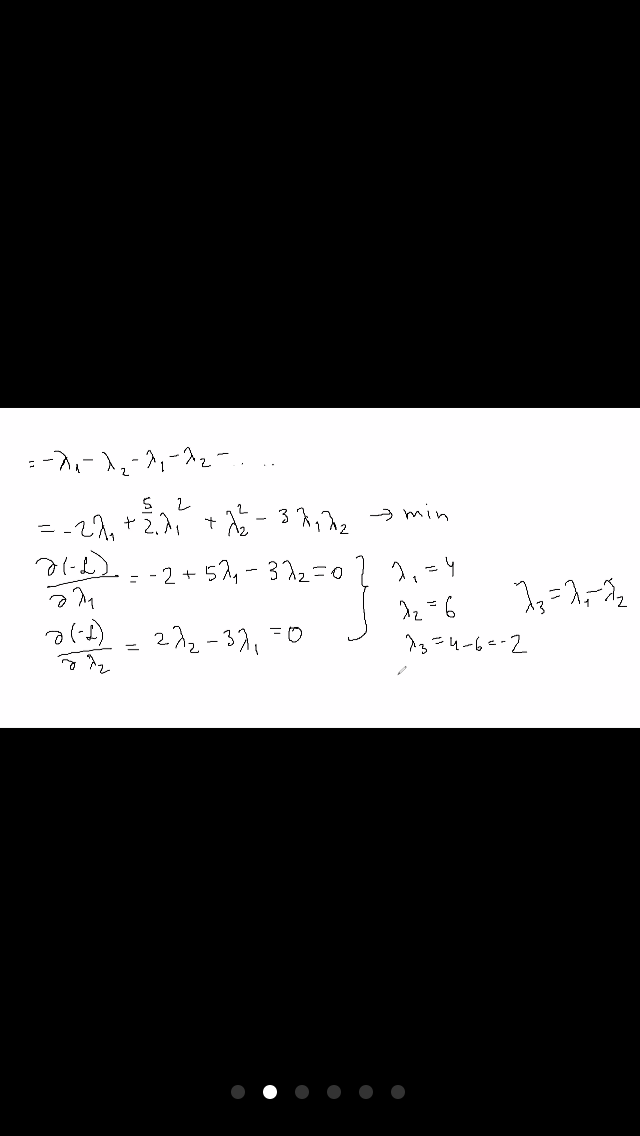 = -λ₁ - λ₂ - λ₁ - λ₂ - .. ..
= -2λ₁ + 5/2 . λ₁² + λ₂² - 3λ₁λ₂ → min
∂(-L)/∂λ₁ = -2 + 5λ₁ - 3λ₂ = 0 } λ₁ = 4
∂(-L)/∂λ₂ = 2λ₂ - 3λ₁ = 0 } λ₂ = 6 λ₃ = λ₁ - λ₂
λ₃ = 4 - 6 = -2